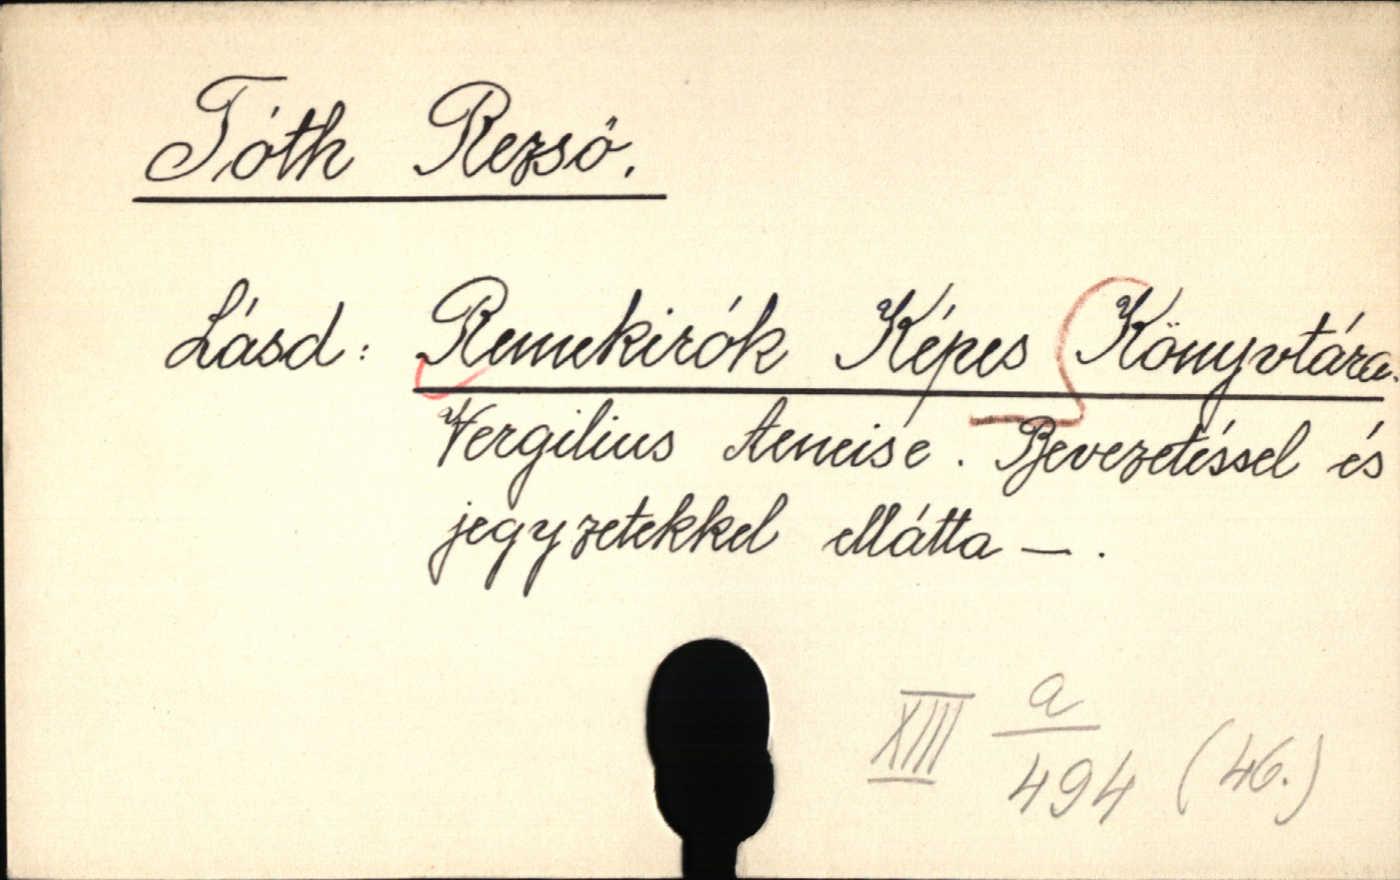 Tóth Rezső.
Lásd: Remekirók Képes Könyvtára.
Vergilius Aeneise. Bevezetéssel és
jegyzetekkel ellátta — .
XIII a/494 (46.)